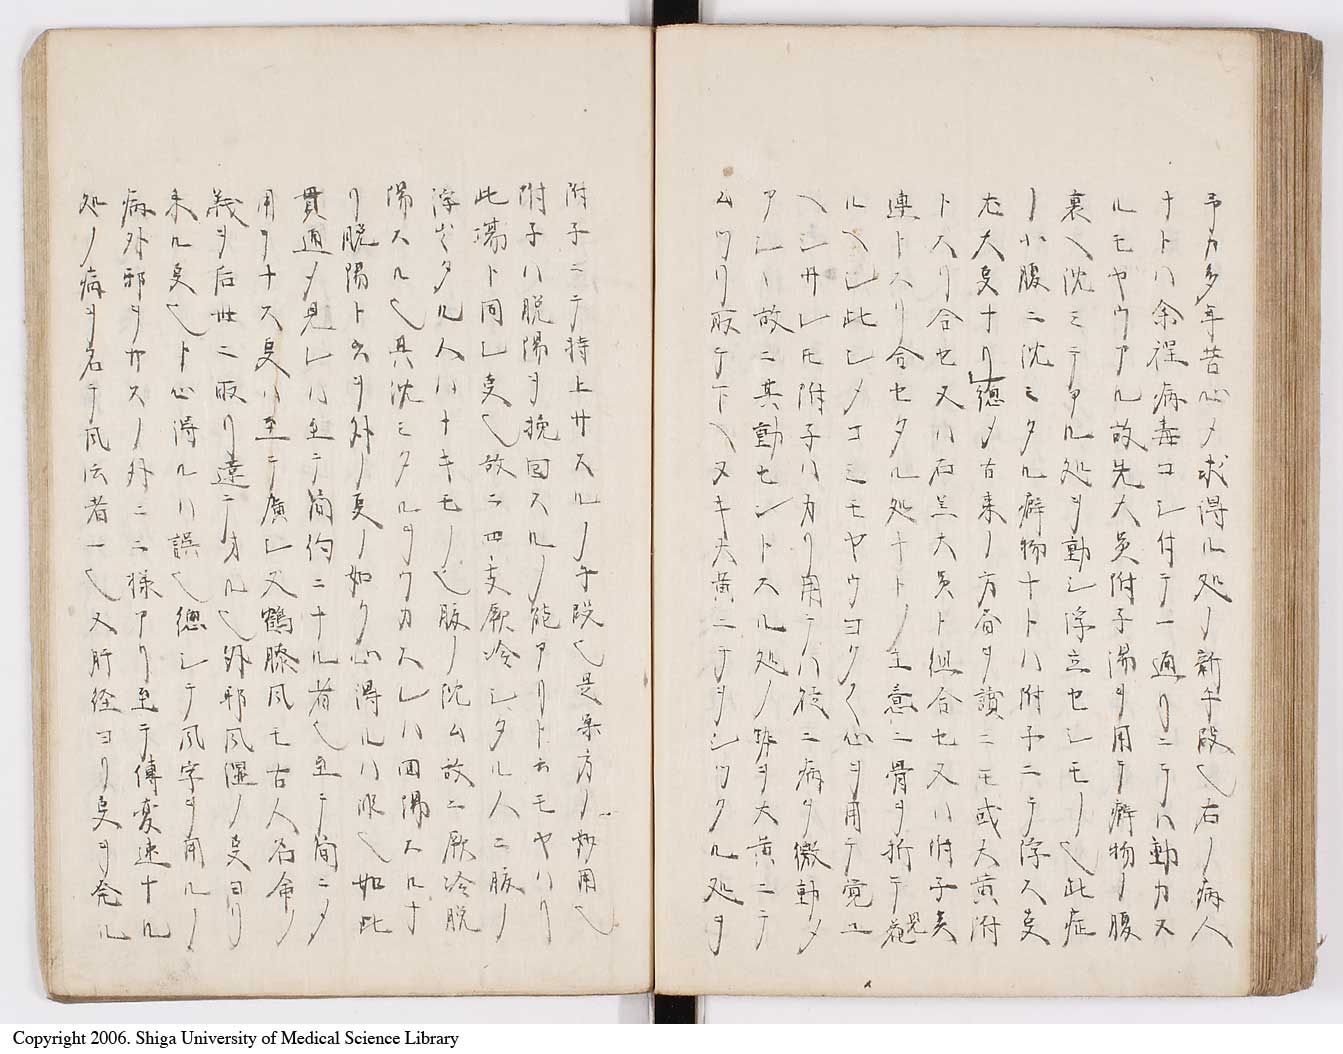 予カ多年苦心〆求得ル処ノ新手段也右ノ病人
ナトハ余程病毒コシ付テ一通リニテハ動カヌ
ルモヤウアル故先大黄附子湯ヲ用テ癖物ノ腹
裏ヘ沈ミテアル処ヲ動シ浮立セシモノ也此症
ノ小腹ニ沈ミタル癖物ナトハ附子ニテ浮ス叓
尤大叓ナリ總〆古来ノ方畧ヲ讀ニモ或大黄附
トスリ合セ又ハ石羔大黄ト組合セ又ハ附子
連トスリ合セタル処ナトノ主意ニ骨ヲ折テ覚
ルヘシ此シメコミモヤウヨクヽ心ヲ用テ覚ユ
ヘシサレ𪜈附子ハカリ用テハ徒ニ病ヲ微動〆
アシヽ故ニ其動セントスル処ノ勢ヲ大黄ニテ
ムツリ取テ下ヘヌキ大黄ニテヲシツクル処ヲ
附子ニテ持上サスルノ手段也是薬方ノ妙用也
附子ハ脱陽ヲ挽回スルノ能アリト云モヤハリ
此湯ト同シ叓也故ニ四支厥冷シタル人ニ脈ノ
浮出タル人ハナキモノ也脈ノ沈ム故ニ厥冷脱
陽スル也其沈ミタルヲウカスレハ回陽スルナ
リ脱陽ト云ヲ外ノ叓ノ如ク心得ルハ非也如此
貫通〆見レハ至テ簡約ニナル者也至テ簡ニ〆
用ヲナス叓ハ至テ廣シ又鶴膝風モ古人名命ノ
義ヲ后世ニ取リ違ニナル也外邪風湿ノ叓ヨリ
来ル叓也ト心得ルハ誤也總シテ風字ヲ用ルノ
病外邪ヲサスノ外ニ二様アリ至テ傳変速ナル
処ノ病ヲ名テ風云者一也又肝経ヨリ叓ヲ発ル
Copyright 2006. Shiga University of Medical Science Library